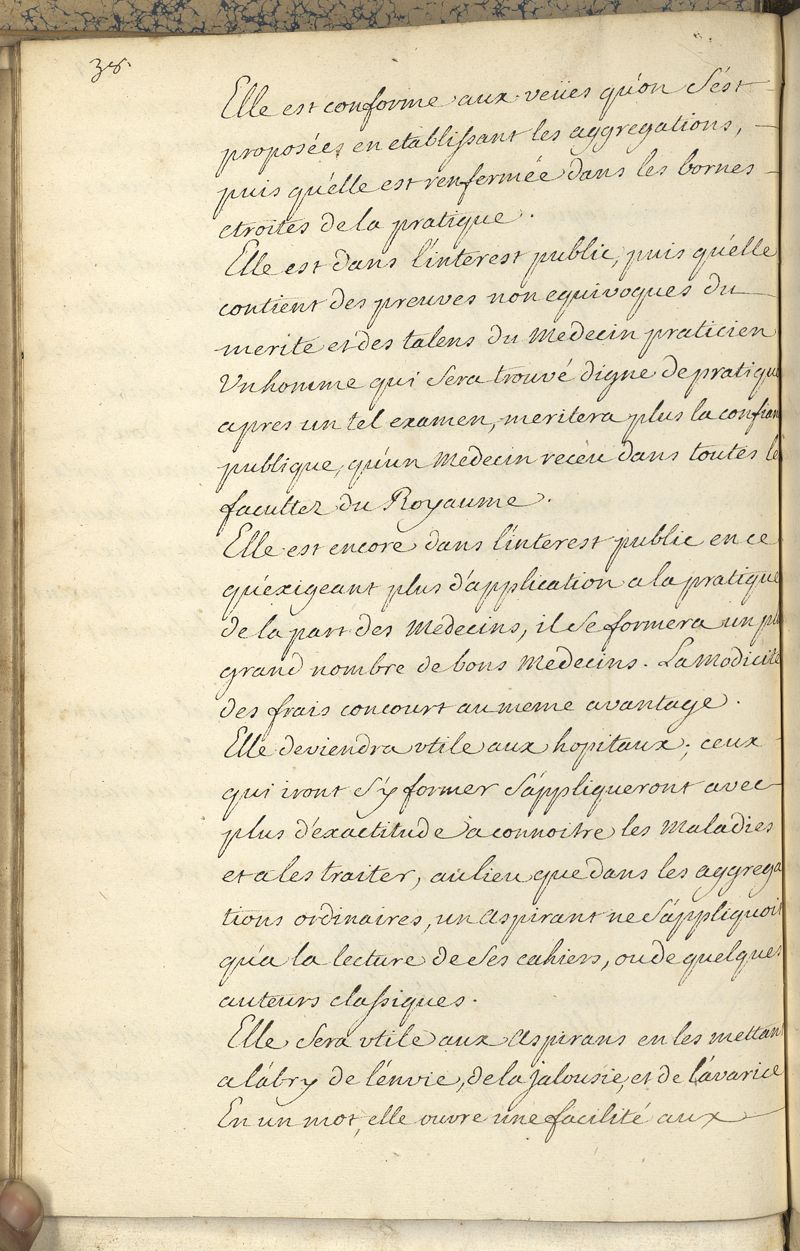 38.
Elle est conforme aux veües qu'on s'est
proposées en etablissant les aggregations,
puis qu'elle est renfermée dans les bornes
etroites de la pratique.
Elle est dans l'interest public, puis qu'elle
contient des preuves non equivoques du
merite et des talens du Medecin praticien
Un homme qui sera trouvé digne de pratiqu
apres un tel examen, meritera plus la confian
publique, qu'un Medecin recëu dans toutes le
facultez du Royaume.
Elle est encore dans l'interest public en ce
qu'exigeant plus d'application a la pratique
de la part des Medecins, il se formera un pl
grand nombre de bons Medecins. La Modicité
des frais concourt au meme avantage.
Elle deviendra vtile aux hopitaux; ceux
qui iront s'y former s'appliqueront avec
plus d'exactitude a connoitre les Maladies
et a les traiter, aulieu que dans les aggrega
tions ordinaires, un aspirant ne s'appliquoit
qu'a la lecture de ses cahiers, ou de quelques
auteurs classiques.
Elle sera vtile aux aspirans en les mettan
a l'abry de l'envie, de la jalousie, et de l'avarice
En un mot, elle ouvre une facilité aux